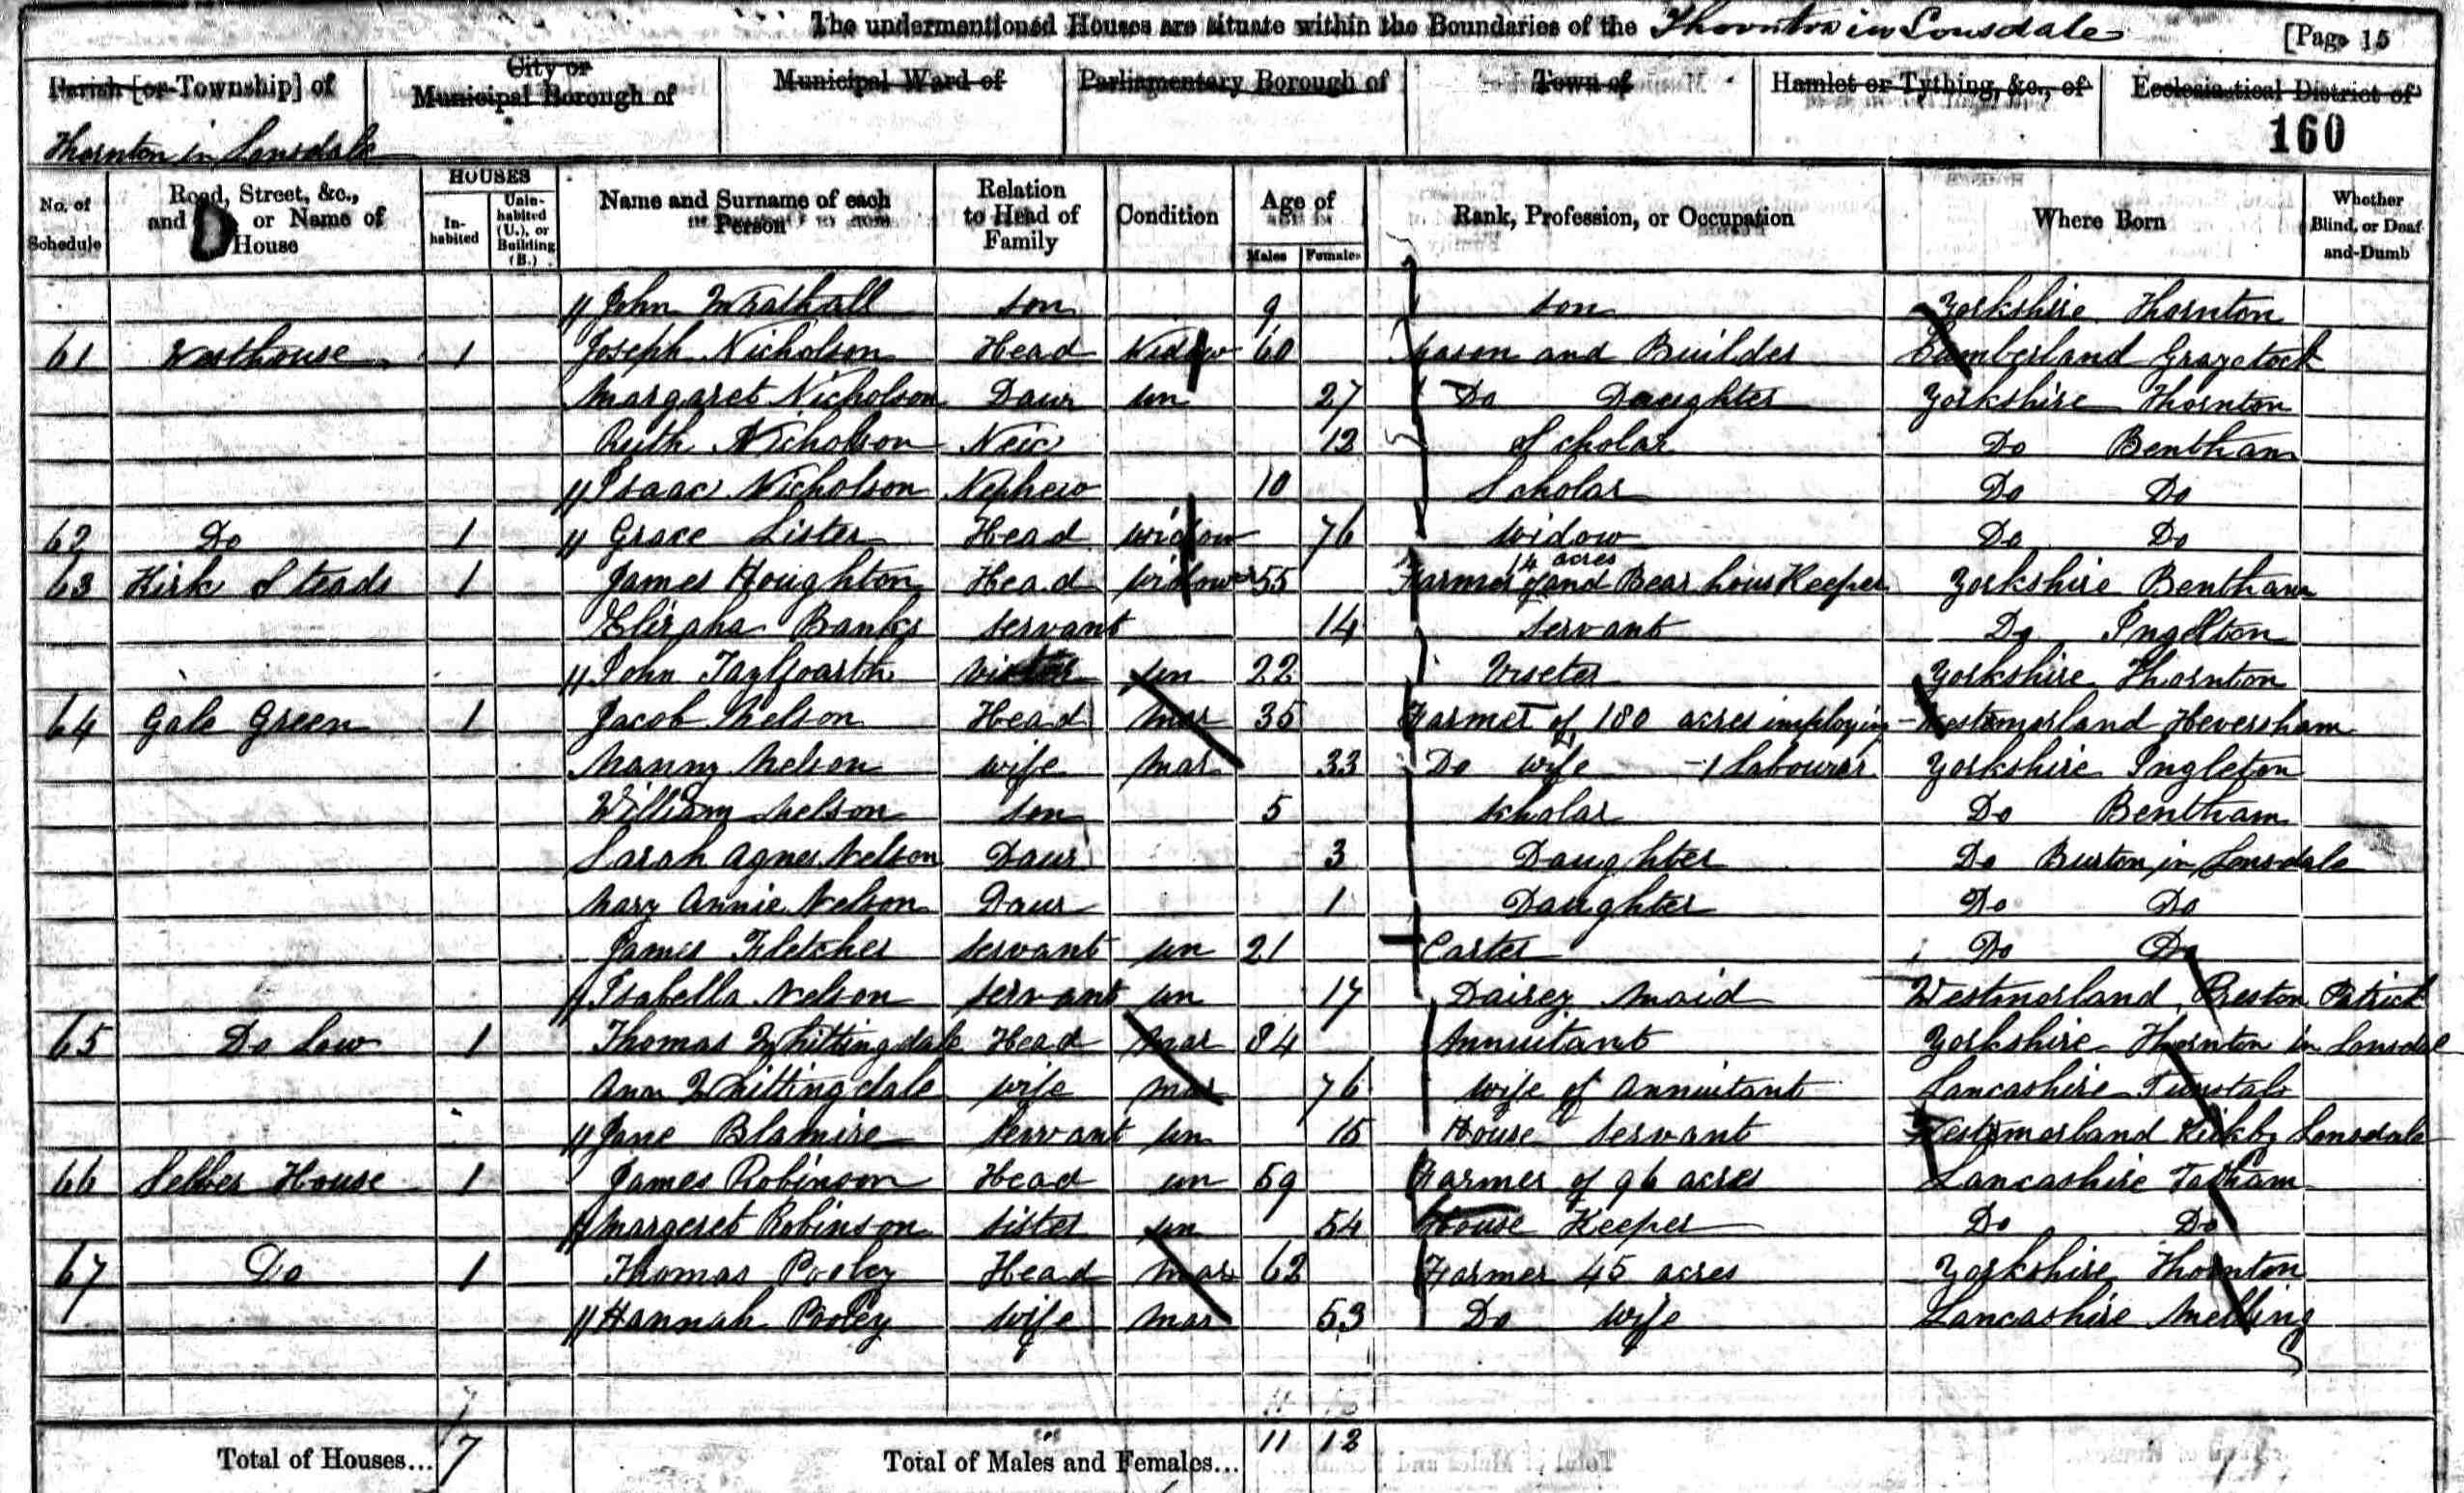 The undermentioned Houses are situate within the Boundaries of the Thornton in Lonsdale [Page 15
Parish [or Township] of City or Municipal Borough of Municipal Ward of Parliamentary Borough of Town of Hamlet or Tything, &c., of Ecclesiastical District of
Thornton in Lonsdale 160
No. of Schedule Road, Street, &c., and No. or Name of House HOUSES Inhabited Uninhabited (U.), or Building (B.) Name and Surname of each Person Relation to Head of Family Condition Age of Males Females Rank, Profession, or Occupation Where Born Whether Blind, or Deaf-and-Dumb
John Wrathall son 9 son Yorkshire Thornton
61 Westhouse 1 Joseph Nicholson Head Widow 60 Mason and Builder Cumberland Graystock
Margaret Nicholson Daur un 27 Do Daughter Yorkshire Thornton
Ruth Nicholson Neic 12 Scholar Do Bentham
Isaac Nicholson Nephew 10 Scholar Do Do
62 Do 1 Grace Lister Head widow 76 widow Do Do
63 Kirk Steads 1 James Houghton Head widower 55 Farmer of 14 acres and Bear hous Keeper Yorkshire Bentham
Banks servant 14 servant Do Ingelton
John un 22 Viseter Yorkshire Thornton
64 Gale Green 1 Jacob Nelson Head mar 35 Farmer of 180 acres imploying Westmorland Heversham
Nanny Nelson wife mar 33 Do wife 1 Labourer Yorkshire Ingleton
William Nelson son 5 scholar Do Bentham
Sarah Agnes Nelson Daur 3 Daughter Do Burton in Lonsdale
Mary Annie Nelson Daur 1 Daughter Do Do
James Fletcher servant un 21 Carter Do Do
Isabella Nelson servant un 17 Dairey Maid Westmorland Preston Patrick
65 Do Low 1 Thomas Whittingdale Head mar 84 Annuitant Yorkshire Thornton in Lonsdale
Ann Whittingdale wife mar 76 wife of Annuitant Lancashire Tunstal
Jane Blamire servant un 15 House servant Westmorland Kirkby Lonsdale
66 House 1 James Robinson Head un 59 Farmer of 96 acres Lancashire Tatham
Margeret Robinson sister un 54 House Keeper Do Do
67 Do 1 Thomas Pooley Head mar 62 Farmer 45 acres Yorkshire Thornton
Hannah Pooley wife mar 53 Do wife Lancashire Melling
Total of Houses... 7 Total of Males and Females... 11 12